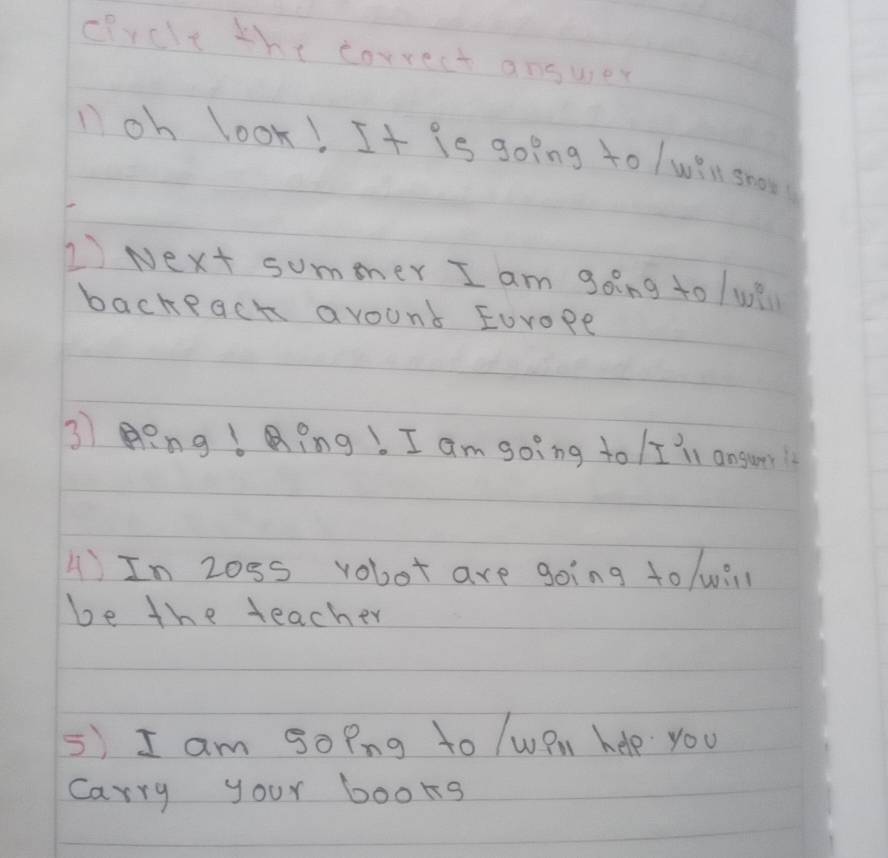 circle the correct answer
1) oh look! It is going to/will snow
2) Next summer I am going to/will
backpack around Europe
3) Ring! Ring! I am going to/I'll answer it
4) In 2055 robot are going to/will
be the teacher
5) I am going to/will help you
carry your books